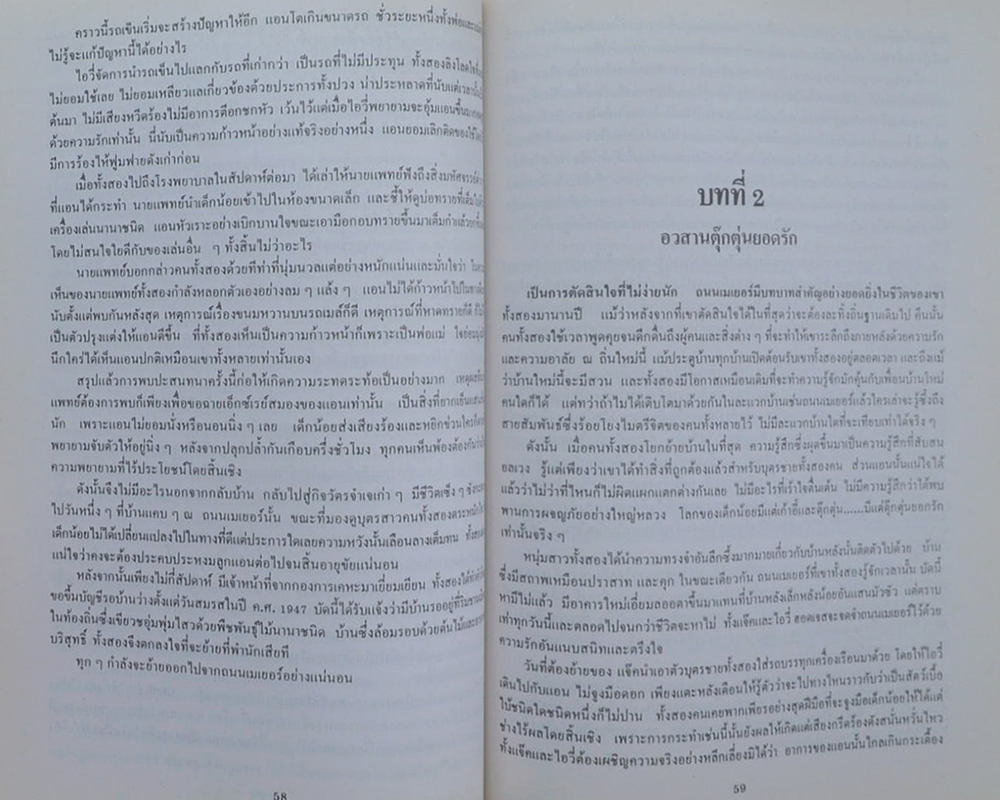 คราวนี้รถเข็นเริ่มจะสร้างปัญหาให้อีก แอนโตเกินขนาดรถ ชั่วระยะหนึ่งทั้งพ่อและแม่
ไม่รู้จะแก้ปัญหานี้ได้อย่างไร
ไอวี่จัดการนำรถเข็นไปแลกกับรถที่เก่ากว่า เป็นรถที่ไม่มีประทุน ทั้งสองลิงโลดใจที่
ไม่ยอมใช้เลย ไม่ยอมเหลียวแลเกี่ยวข้องด้วยประการทั้งปวง น่าประหลาดที่นับแต่เวลานั้นเป็น
ต้นมา ไม่มีเสียงหวีดร้องไม่มีอาการดึอกชกหัว เว้นไว้แต่เมื่อไอวี่พยายามจะอุ้มแอนขึ้นมา
ด้วยความรักเท่านั้น นี่นับเป็นความก้าวหน้าอย่างแท้จริงอย่างหนึ่ง แอนยอมเลิกติดของใช้โดย
มีการร้องไห้ฟูมฟายดังเก่าก่อน
เมื่อทั้งสองไปถึงโรงพยาบาลในสัปดาห์ต่อมา ได้เล่าให้นายแพทย์ฟังถึงสิ่งมหัศจรรย์
ที่แอนได้กระทำ นายแพทย์นำเด็กน้อยเข้าไปในห้องขนาดเล็ก และชี้ให้ดูบ่อทรายที่เต็มไปด้วย
เครื่องเล่นนานาชนิด แอนหัวเราะอย่างเบิกบานใจขณะเอามือกอบทรายขึ้นมาเต็มกำแล้วยกขึ้น
โดยไม่สนใจใยดีกับของเล่นอื่น ๆ ทั้งสิ้นไม่ว่าอะไร
นายแพทย์บอกกล่าวคนทั้งสองด้วยทีท่าที่นุ่มนวลแต่อย่างหนักแน่นและมั่นใจว่า ในความ
เห็นของนายแพทย์ทั้งสองกำลังหลอกตัวเองอย่างลม ๆ แล้ง ๆ แอนไม่ได้ก้าวหน้าไปใน
นับตั้งแต่พบกันหลังสุด เหตุการณ์เรื่องขนมหวานบนรถเมล์ก็ดี เหตุการณ์ที่หาดทรายก็ดี
เป็นตัวปรุงแต่งให้แอนดีขึ้น ที่ทั้งสองเห็นเป็นความก้าวหน้าก็เพราะเป็นพ่อแม่
นึกใคร่ได้เห็นแอนปกติเหมือนเขาทั้งหลายเท่านั้นเอง
สรุปแล้วการพบปะสนทนาครั้งนี้ก่อให้เกิดความระทดระท้อเป็นอย่างมาก เหตุผลที่นาย
แพทย์ต้องการพบก็เพียงเพื่อขอฉายเอ็กซ์เรย์สมองของแอนเท่านั้น เป็นสิ่งที่ยากเย็นแสน
นัก เพราะแอนไม่ยอมนั่งหรือนอนนิ่ง ๆ เลย เด็กน้อยส่งเสียงร้องและหยิกข่วนใครก็ตามที่
พยายามจับตัวให้อยู่นิ่ง ๆ หลังจากปลุกปล้ำกันเกือบครึ่งชั่วโมง ทุกคนเห็นพ้องต้องกันว่า
ความพยายามที่ไร้ประโยชน์โดยสิ้นเชิง
ดังนั้นจึงไม่มีอะไรนอกจากกลับบ้าน กลับไปสู่กิจวัตรจำเจเก่า ๆ มีชีวิตเซ็ง ๆ
ไปวันหนึ่ง ๆ ที่บ้านแคบ ๆ ณ ถนนเมเยอร์นั้น ขณะที่มองดูบุตรสาวคนทั้งสองตระหนัก
เด็กน้อยไม่ได้เปลี่ยนแปลงไปในทางที่ดีแต่ประการใดเลยความหวังนั้นเลือนลางเต็มทน
แน่ใจว่าคงจะต้องประคบประหงมลูกแอนต่อไปจนสิ้นอายุขัยแน่นอน
หลังจากนั้นเพียงไม่กี่สัปดาห์ มีเจ้าหน้าที่จากกองการเคหะมาเยี่ยมเยียน ทั้งสองได้
ขอขึ้นบัญชีรอบ้านว่างตั้งแต่วันสมรสในปี ค.ศ. 1947 บัดนี้ได้รับแจ้งว่ามีบ้านรออยู่ที่
ในท้องถิ่นซึ่งเขียวชอุ่มพุ่มไสวด้วยพืชพันธุ์ไม้นานาชนิด บ้านซึ่งล้อมรอบด้วยต้นไม้และ
บริสุทธิ์ ทั้งสองจึงตกลงใจที่จะย้ายที่พำนักเสียที
ทุก ๆ กำลังจะย้ายออกไปจากถนนเมเยอร์อย่างแน่นอน
58
บทที่ 2
อวสานตุ๊กตุ่นยอดรัก
เป็นการตัดสินใจที่ไม่ง่ายนัก ถนนเมเยอร์มีบทบาทสำคัญอย่างยอดยิ่งในชีวิตของเขา
ทั้งสองมานานปี แม้ว่าหลังจากที่เขาตัดสินใจได้ในที่สุดว่าจะต้องละทิ้งถิ่นฐานเดิมไป คืนนั้น
คนทั้งสองใช้เวลาพูดคุยจนดึกดื่นถึงผู้คนและสิ่งต่าง ๆ ที่จะทำให้เขาระลึกถึงภายหลังด้วยความรัก
และความอาลัย ณ ถิ่นใหม่นี้ แม้ประตูบ้านทุกบ้านเปิดต้อนรับเขาทั้งสองอยู่ตลอดเวลา และถึงแม้
ว่าบ้านใหม่นี้จะมีสวน และทั้งสองมีโอกาสเหมือนเดิมที่จะทำความรู้จักมักคุ้นกับเพื่อนบ้านใหม่
คนใดก็ได้ แต่ทว่าถ้าไม่ได้เติบโตมาด้วยกันในละแวกบ้านเช่นถนนเมเยอร์แล้วใครเล่าจะรู้ซึ้งถึง
สายสัมพันธ์ซึ่งร้อยโยงไมตรีจิตของคนทั้งหลายไว้ ไม่มีละแวกบ้านใดที่จะเทียบเท่าได้จริง ๆ
ดังนั้น เมื่อคนทั้งสองโยกย้ายบ้านในที่สุด ความรู้สึกซึ่งผุดขึ้นมาเป็นความรู้สึกที่สับสน
อลเวง รู้แต่เพียงว่าเขาได้ทำสิ่งที่ถูกต้องแล้วสำหรับบุตรชายทั้งสองคน ส่วนแอนนั้นแน่ใจได้
แล้วว่าไม่ว่าที่ไหนก็ไม่ผิดแผกแตกต่างกันเลย ไม่มีอะไรที่เร้าใจตื่นเต้น ไม่มีความรู้สึกว่าได้พบ
พานการผจญภัยอย่างใหญ่หลวง โลกของเด็กน้อยมีแต่เก้าอี้และตุ๊กตุ่น......มีแต่ตุ๊กตุ่นยอกรัก
เท่านั้นจริง ๆ
หนุ่มสาวทั้งสองได้นำความทรงจำอันลึกซึ้งมากมายเกี่ยวกับบ้านหลังนั้นติดตัวไปด้วย บ้าน
ซึ่งมีสภาพเหมือนปราสาท และคุก ในขณะเดียวกัน ถนนเมเยอร์ที่เขาทั้งสองรู้จักเวลานั้น บัดนี้
หามีไม่แล้ว มีอาคารใหม่เอี่ยมลอออตาขึ้นมาแทนที่บ้านหลังเล็กหลังน้อยอันแสนมัวซัว แต่ตราบ
เท่าทุกวันนี้และตลอดไปจนกว่าชีวิตจะหาไม่ ทั้งแจ็คและไอวี่ ฮอดเจสจะจดจำถนนเมเยอร์ไว้ด้วย
ความรักอันแนบสนิทและตรึงใจ
วันที่ต้องย้ายของ แจ็คนำเอาตัวบุตรชายทั้งสองใส่รถบรรทุกเครื่องเรือนมาด้วย โดยให้ไอวี่
เดินไปกับแอน ไม่จูงมือดอก เพียงแตะหลังเตือนให้รู้ตัวว่าจะไปทางไหนราวกับว่าเป็นสัตว์เบื้อ
ใบ้ชนิดใดชนิดหนึ่งก็ไม่ปาน ทั้งสองคนเคยพากเพียรอย่างสุดฝีมือที่จะจูงมือเด็กน้อยให้ได้แต่
ช่างไร้ผลโดยสิ้นเชิง เพราะการกระทำเช่นนี้นั้นยังผลให้เกิดแต่เสียงกรีดร้องดังสนั่นหวั่นไหว
ทั้งแจ๊คและไอวี่ต้องเผชิญความจริงอย่างหลีกเลี่ยงมิได้ว่า อาการของแอนนั้นไกลเกินกระเตื้อง
59